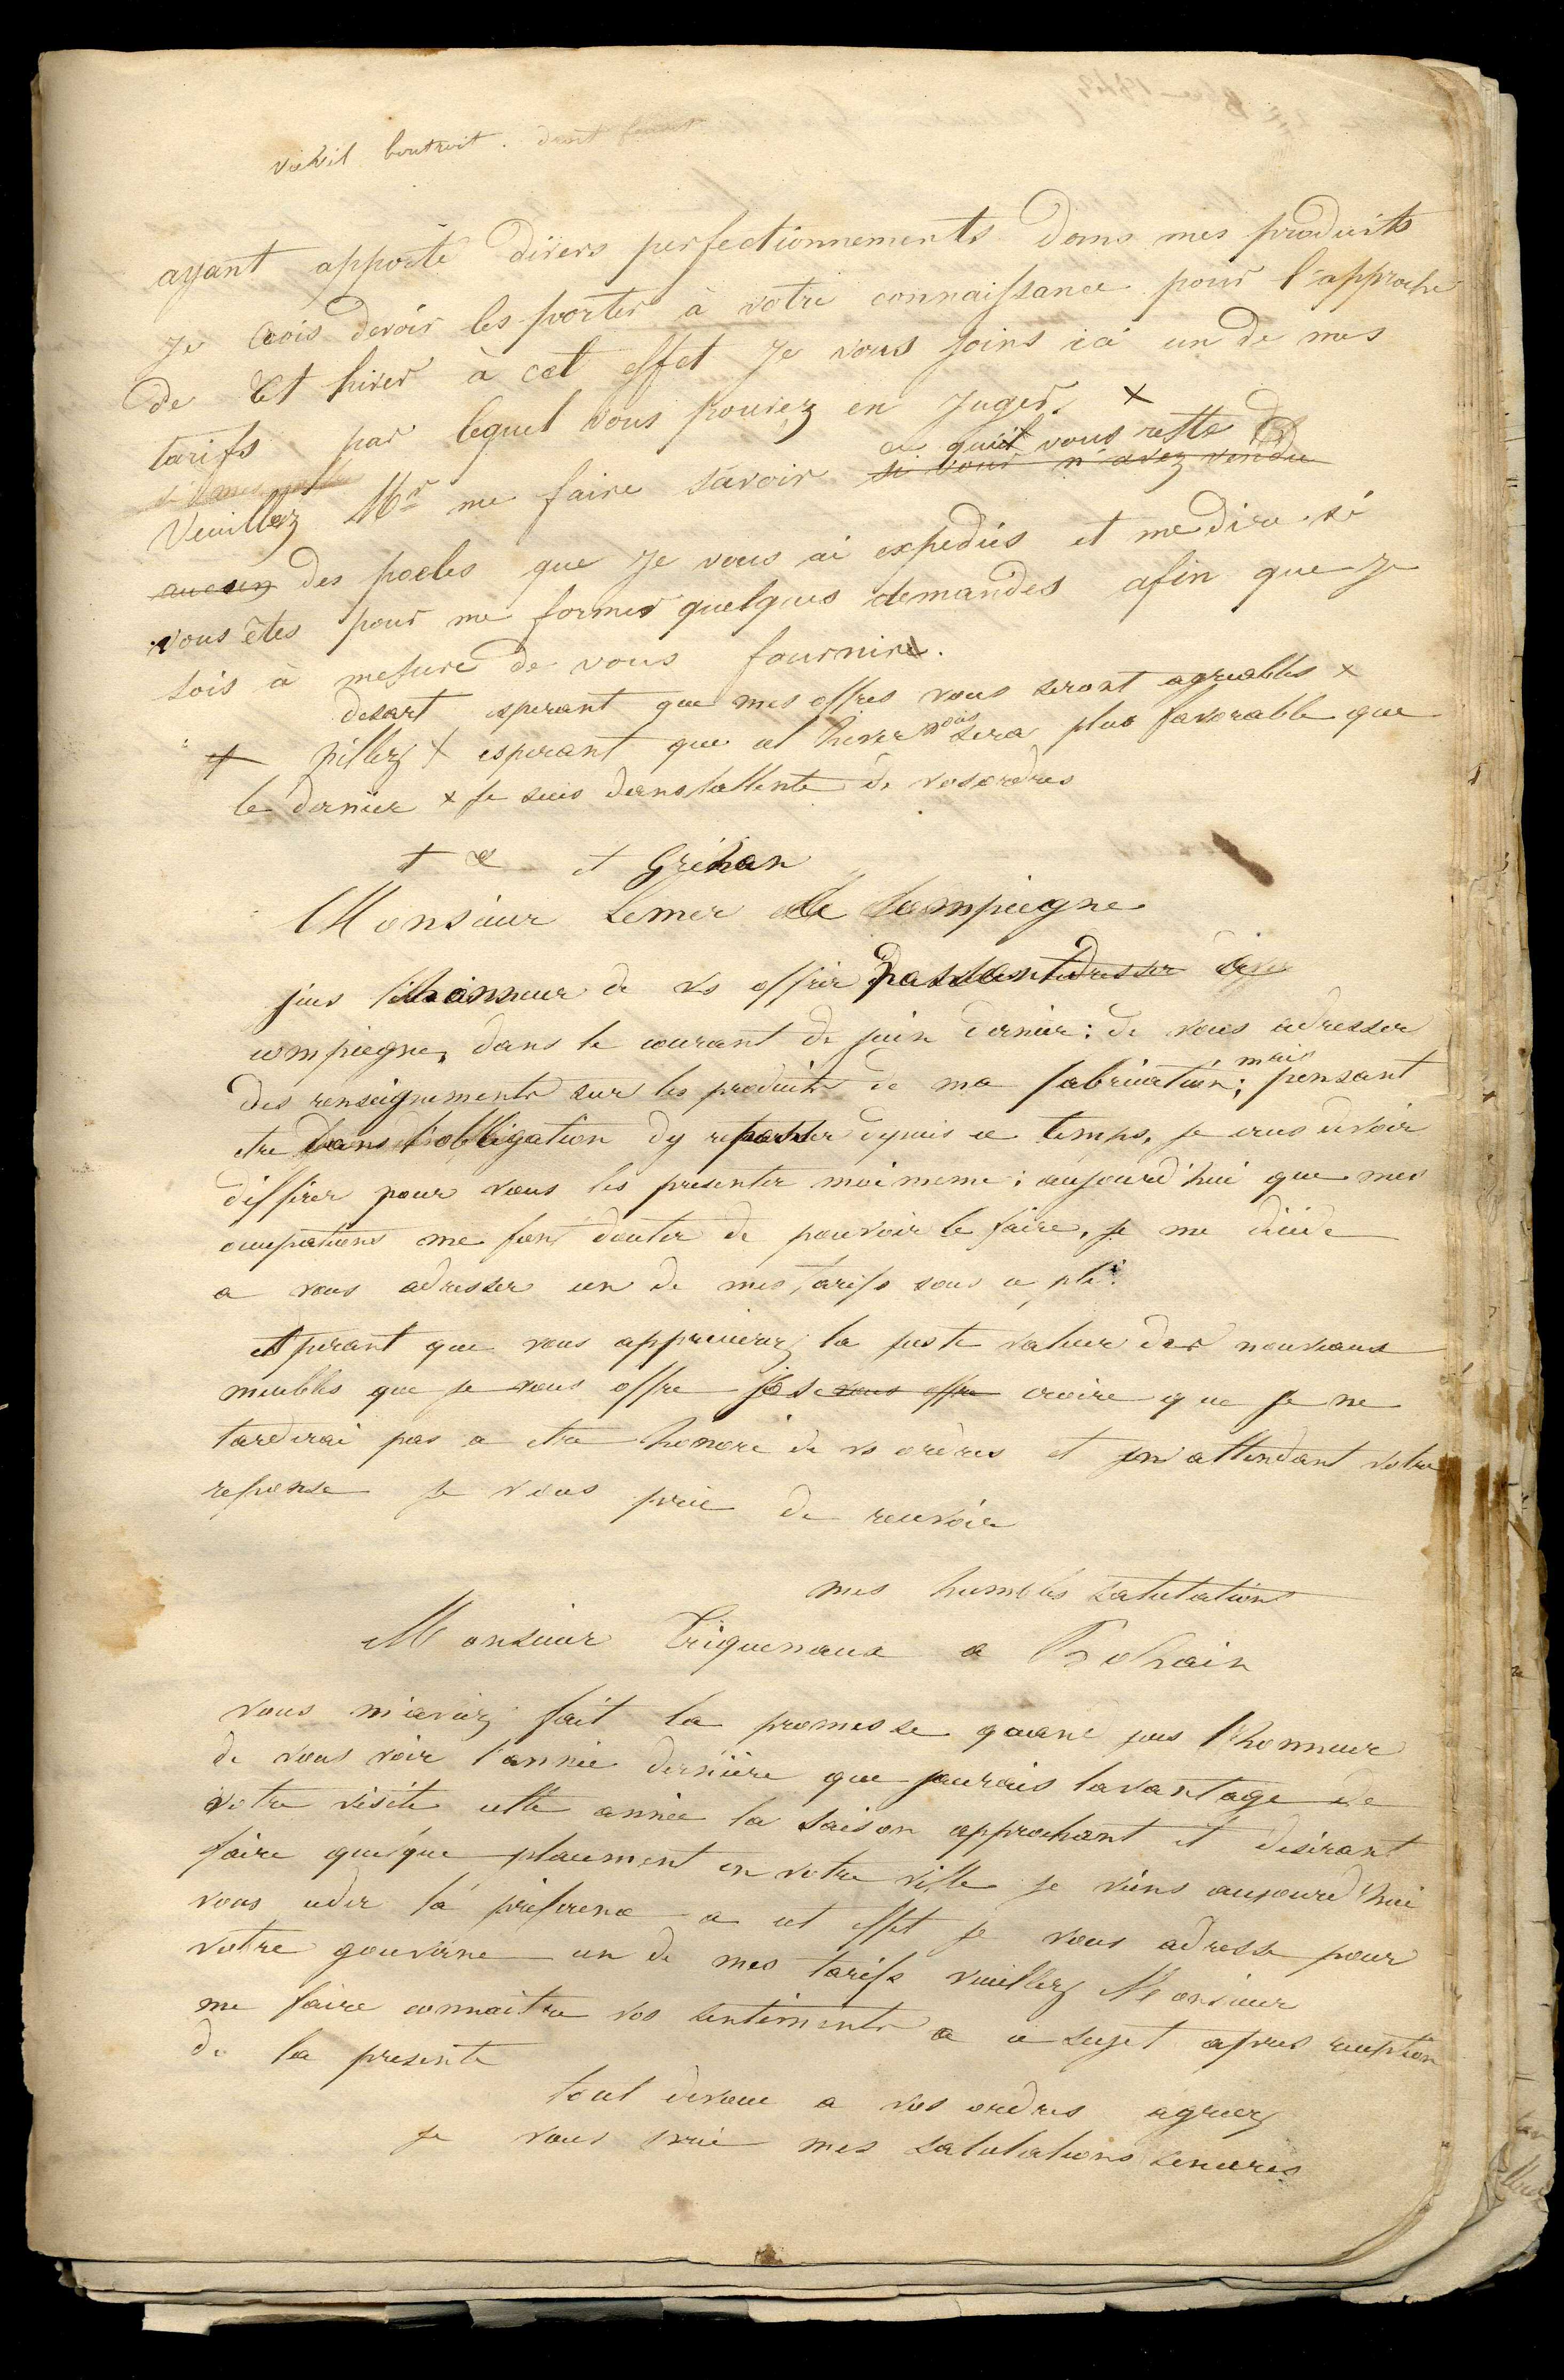 boutroit. dont
ayant apporté divers perfectionnements dans mes produits
Je crois devoir les porter à votre connaissance pour l'approche
de cet hiver à cet effet Je vous joins ici un de mes
tarifs par lequel vous pouvez en Juger. x
ce quil vous reste
Veuillez Mr me faire savoir si vous n'avez vendu
aucun des poeles que Je vous ai expediés et me dire si
vous êtes pour me former quelques demandes afin que Je
sois à mesure de vous fournire.
desart esperant que mes offres vous seront agreables x
x pillez x esperant que cet hiver vous sera plus favorable que
le dernier x Je suis dans lattente de vos ordres
et Gréhan
Monsieur Lemer de Compiegne
jeus l'honneur de vs offrir passant
compiegne, dans le courant de juin dernier : de vous adresser
des renseignements sur les produits de ma fabrication ; mais pensant
etre dans l'obligation dy repasser depuis ce temps, je crus devoir
differer pour vous les presenter moi meme ; aujourd'hui que mes
occupations me font douter de pouvoir le faire, je me décide
a vous adresser un de mes tarifs sous ce pli.
Esperant que vous apprecierez la juste valeur des nouveaux
meubles que je vous offre jose vous offre croire que je ne
tarderai pas a etre honoré de vs ordres et en attendant votre
reponse je vous prie de recevoir
mes humbles salutations
Monsieur Triquenaux a Bohain
vous m'aviez fait la promesse quand jeus l'honneur
de vous voir l'année dernière que jaurais lavantage de
votre visite cette année la saison approchant et desirant
faire quelque placement en votre ville je viens aujourd'hui
vous ceder la préférence a cet effet je vous adresse pour
votre gouverne un de mes tarifs veuillez Monsieur
me faire connaitre vos sentiments a ce sujet apres reception
de la presente
tout devoue a vos ordres agreez
je vous prie mes salutations sinceres